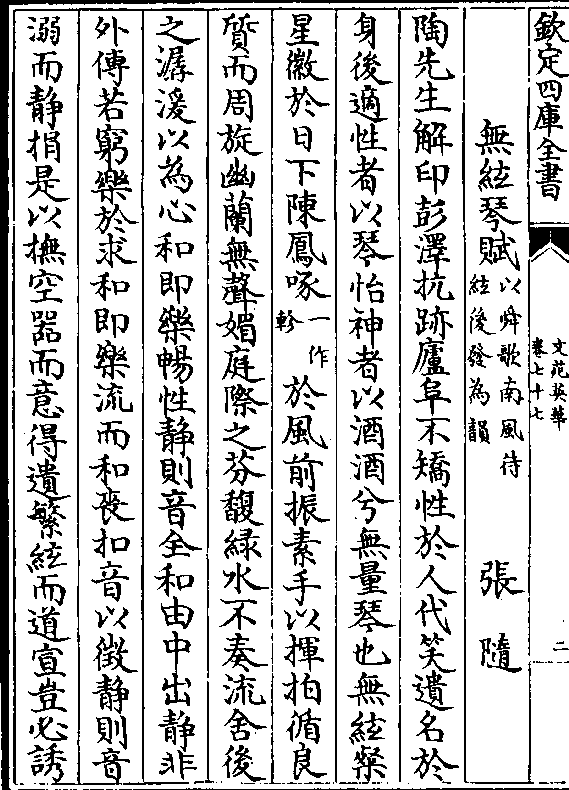 欽定四庫全書
文苑英華
卷七十七
二
無絃琴賦以舜歌南風待絃後發為韻
張隨
陶先生解印彭澤抗跡廬阜不矯性於人代笑遺名於
身後適性者以琴怡神者以酒酒兮無量琴也無絃粲
星徽於日下陳鳳啄一作軫於風前振素手以揮拍循良
質而周旋幽蘭無聲媚庭際之芬馥緑水不奏流舍後
之潺湲以為心和即樂暢性靜則音全和由中出靜非
外傳若窮樂於求和即樂流而和喪扣音以徴靜則音
溺而靜捐是以撫空器而意得遺繁絃而道宣豈必誘